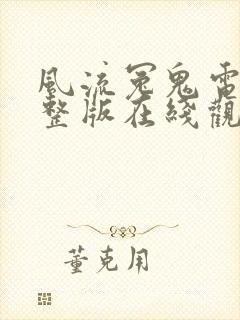 風流冤鬼電
整版在綫觀
董克用